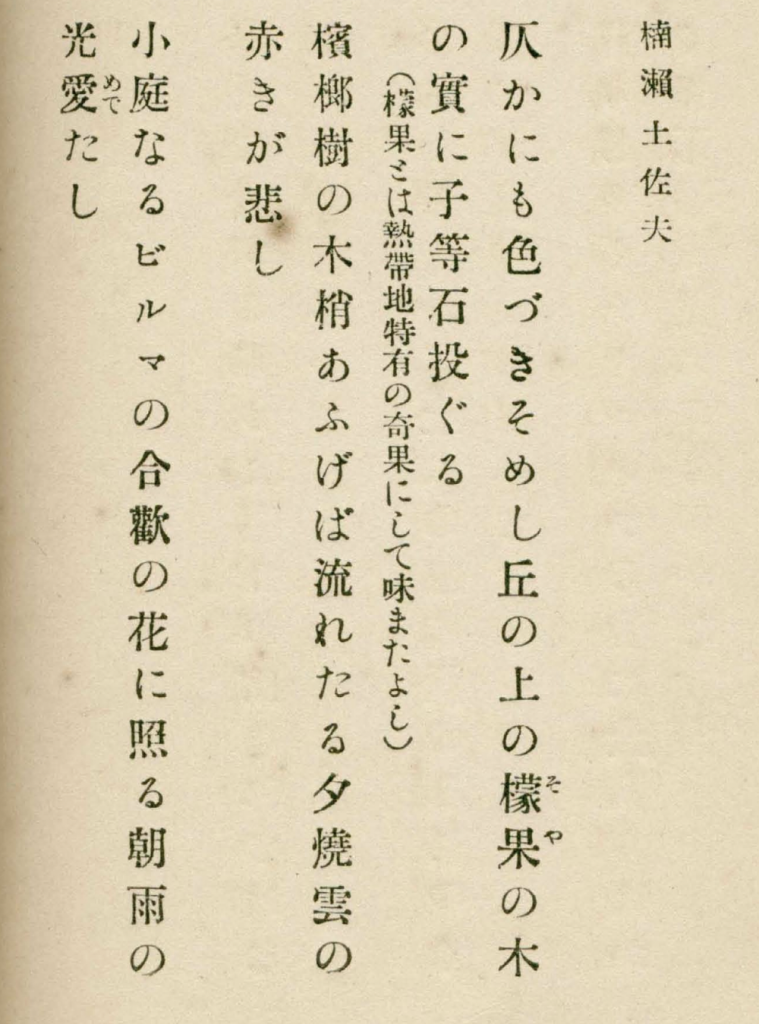 楠瀨土佐夫
仄かにも色づきそめし丘の上の檬果の木
の實に子等石投ぐる
(檬果とは熱帶地特有の奇果にして味またよし)
檳榔樹の木梢あふげば流れたる夕燒雲の
赤きが悲し
小庭なるビルマの合歡の花に照る朝雨の
光愛たし
そや
めで